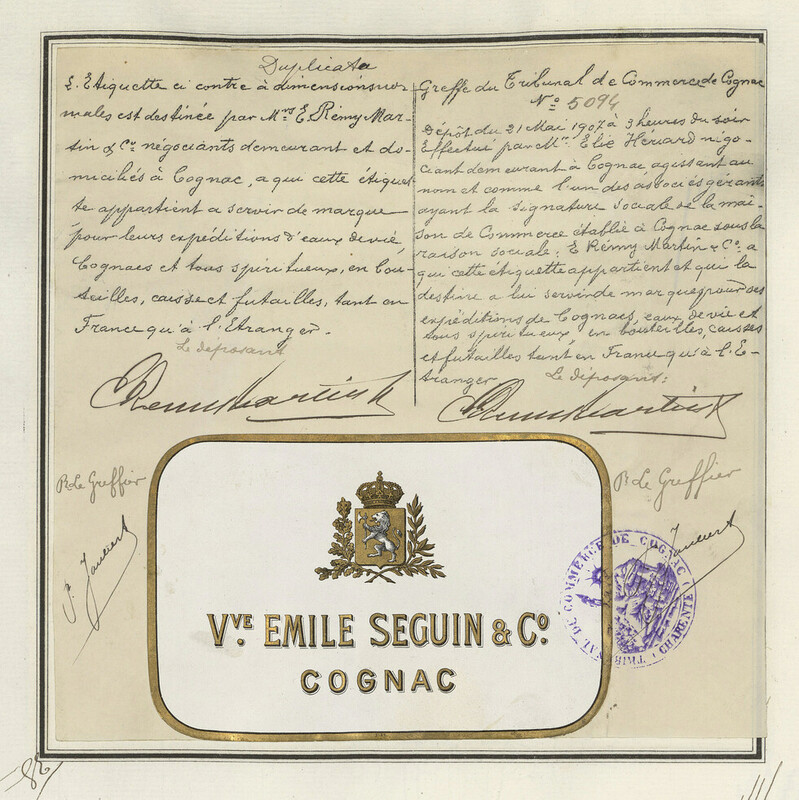 Duplicata
L'Etiquette ci contre à dimensions nor-
males est destinée par Mrs E. Rémy Mar-
tin & Co négociants demeurant et do-
miciliés à Cognac, a qui cette étiquet-
te appartient a servir de marque
pour leurs expéditions d'eaux de vie,
Cognacs et tous spiritueux, en bou-
teilles, caisses et futailles, tant en
France qu'à l'Etranger.
Le déposant
Remy Martin &
P. Le Greffier
Greffe du Tribunal de Commerce de Cognac
No 5094
Dépôt du 21 Mai 1907 à 3 heures du soir
Effectué par Mr. Elie Hériard négo-
ciant demeurant à Cognac agissant au
nom et comme l'un des associés gérants
ayant la signature sociale de la mai-
son de Commerce établie à Cognac sous la
raison sociale: E Rémy Martin & Co. a
qui cette étiquette appartient et qui la
destine a lui servir de marque pour ses
expéditions de Cognacs, eaux de vie et
tous spiritueux, en bouteilles, caisses
et futailles tant en France qu'à l'E-
tranger
Le déposant:
Remy Martin &
P. Le Greffier
VVE EMILE SEGUIN & Co.
COGNAC
TRIBUNAL DE COMMERCE DE COGNAC (CHARENTE)